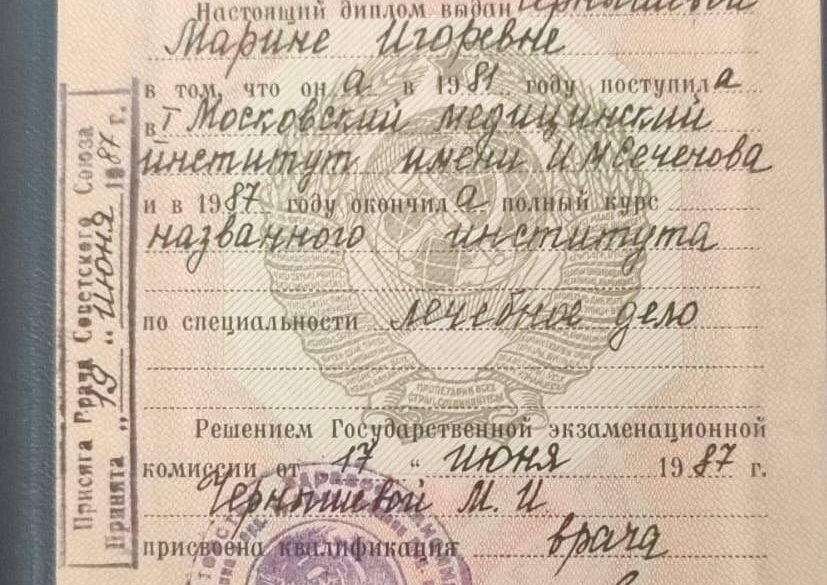 Настоящий диплом выдан Чернышевой
Марине Игоревне
в том, что он а в 1981 году поступил а
в I Московский медицинский
институт имени И М Сеченова
и в 1987 году окончил а полный курс
названного института
по специальности лечебное дело
ПРОЛЕТАРИИ ВСЕХ
СТРАН, СОЕДИНЯЙТЕСЬ!
Решением Государственной экзаменационной
комиссии от 17 " июня 1987 г.
Чернышевой М. И
присвоена квалификация врача
Присяга Врача Советского Союза
Принята „19 " июня 1987 г.